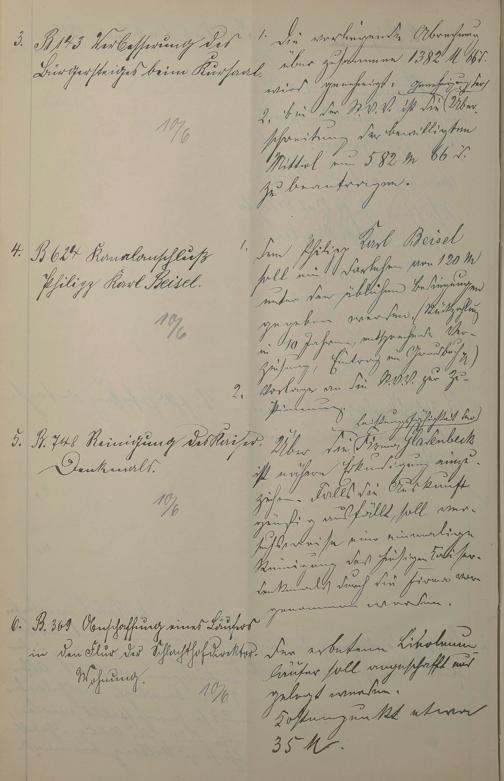 3. B 143 Verbesserung des
Bürgersteiges beim Kursaal.
10/6
1. Die vorliegende Abrechnung
über zusammen 1382 M 86 d.
wird genehmigt.
2. bei der St. V. V. ist die Genehmigung der Über-
schreitung der bewilligten
Mittel um 582 M 86 d.
zu beantragen.
4. B 624 Kanalanschluß
Philipp Karl Beisel.
10/6
1. Dem Philipp Karl Beisel
soll ein Darlehen von 120 M
unter den üblichen Bedingungen
gegeben werden. (Rückzahlung
in 10 Jahren, entsprechende Ver-
zinsung, Eintrag im Grundbuch)
2. Vorlage an die St. V. V. zur Zu-
stimmung.
5. B. 748 Reinigung des Kaiser-
Denkmals.
10/6
Über die Leistungsfähigkeit der
Firma Glasenbeck
ist nähere Erkundigung einzu-
ziehen. Falls die Auskunft
günstig ausfällt, soll ver-
suchsweise eine einmalige
Reinigung des hiesigen Kaiser-
denkmals durch die Firma vor-
genommen werden.
6. B. 369 Anschaffung eines Läufers
in den Flur der Schlachthofdirektor-
Wohnung.
10/6
Der erbetene Linoleum
läufer soll angeschafft und
gelegt werden.
Kostenpunkt etwa
35 M.